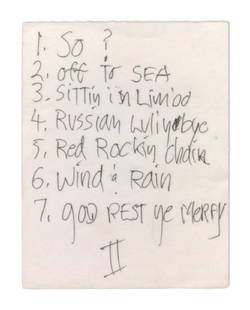 1. So ?
2. off to SEA
3. Sittin i in Limbo
4. Russian
5. Red Rockin chair
6. Wind & Rain
7. goD REST ye MERRY
II